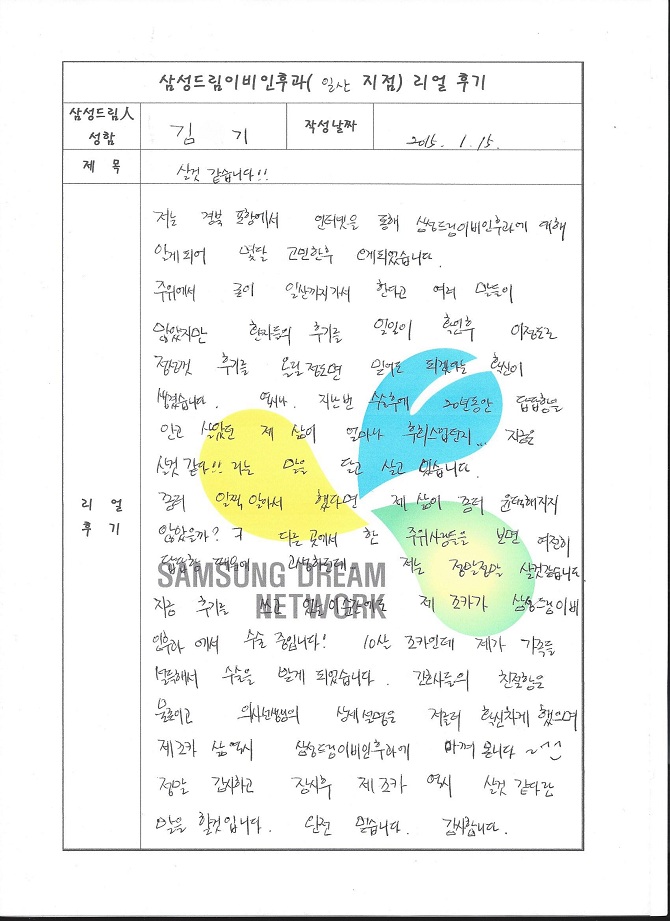 삼성드림이비인후과( 일산 지점) 리얼 후기
삼성드림人 성함
김 기
작성날짜
2015. 1. 15.
제 목
살것 같습니다!!
리 얼 후 기
저는 경북 포항에서 인터넷을 통해 삼성드림이비인후과에 대해
알게되어 몇달 고민한후 오게되었습니다.
주위에서 굳이 일산까지가서 한다고 여러 말들이
많았지만 환자들의 후기를 일일이 확인후 이정도로
정성껏 후기를 올릴정도면 믿어도 되겠다는 확신이
생겼습니다. 역시나 지난번 수술후에 20년동안 답답함을
안고 살았던 제 삶이 얼마나 후회스럽던지... 지금은
살것 같다!! 라는 말을 달고 살고 있습니다.
좀더 일찍 알아서 했다면 제 삶이 좀더 윤택해지지
않았을까? ㅋ 다른 곳에서 한 주위사람들을 보면 여전히
답답함 때문에 고생하던데... 저는 정말정말 살것같습니다.
지금 후기를 쓰고 있는 이순간에도 제 조카가 삼성드림이비
인후과 에서 수술 중입니다! 10살 조카인데 제가 가족들
설득해서 수술을 받게 되었습니다. 간호사들의 친절함은
물론이고 의사선생님의 상세설명은 저를더 확신차게 했으며
제조카 삶 역시 삼성드림이비인후과에 맡겨 봅니다 ~^^
정말 감사하고 잠시후 제 조카 역시 살것 같다란
말을 할것입니다. 완전 믿습니다. 감사합니다.
SAMSUNG DREAM
NETWORK